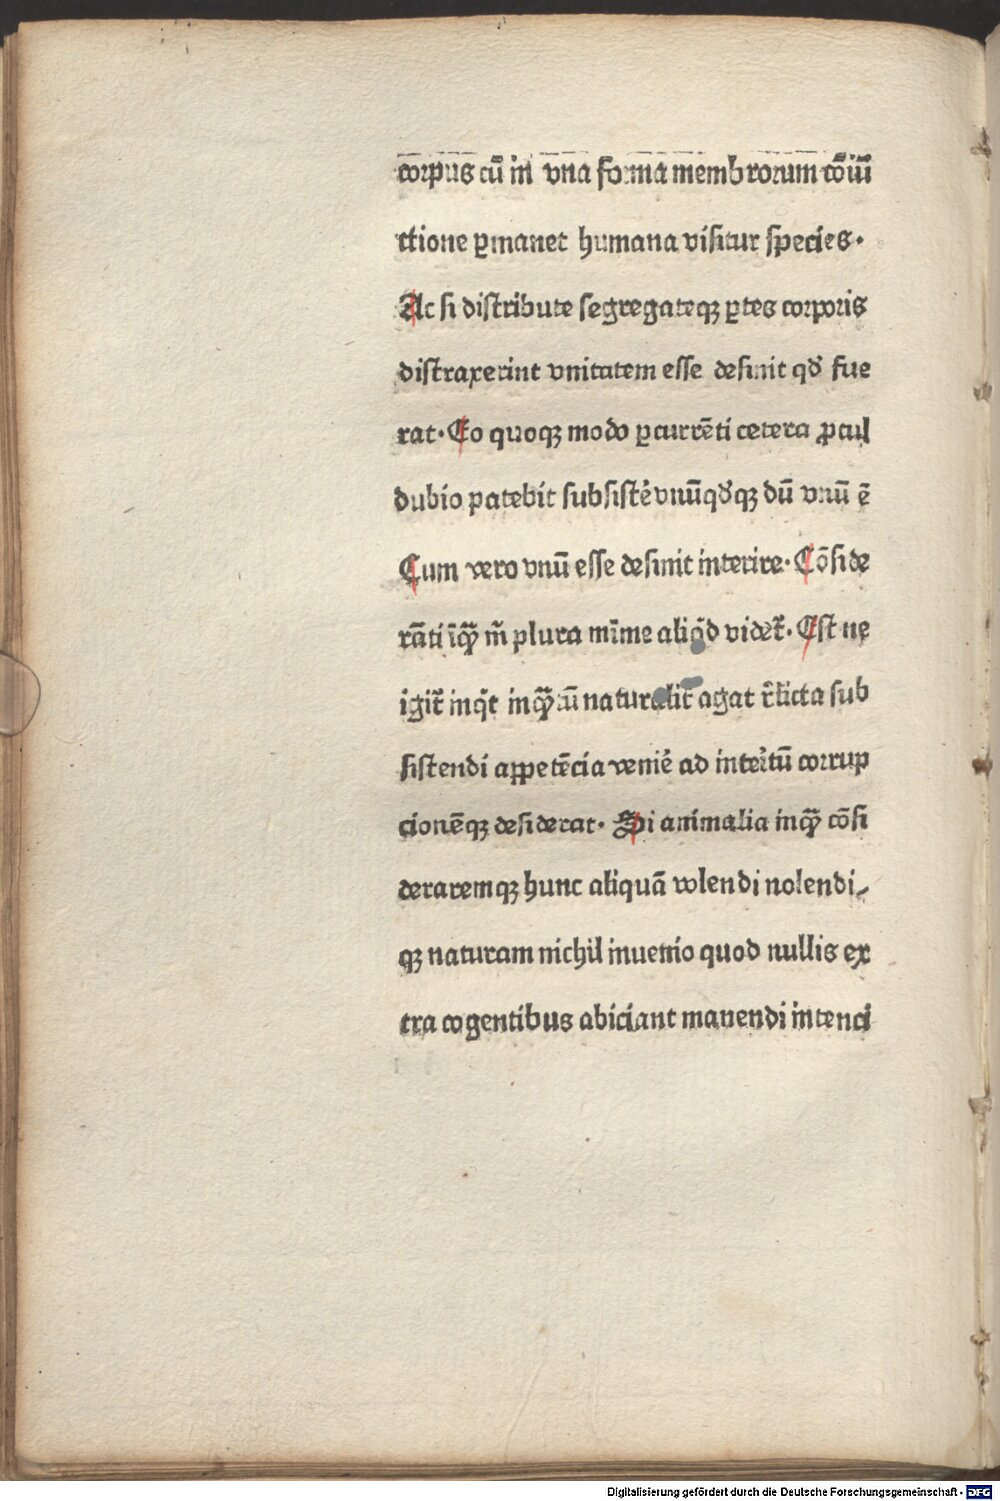 corpus cū in vna forma membrorum cōiū
ctione ꝑmanet humana visitur species.
Ac si distribute segregateqꝫ ꝑtes corporis
distraxerint vnitatem esse desinit qđ fue
rat. Eo quoqꝫ modo ꝑcurrēti cetera ꝓcul
dubio patebit subsistē vnūqđqꝫ dū vnū ē
Cum vero vnū esse desinit interire. Cōside
rāti īqͣꝫ m̄ plura mīme aliqd videt᷑. Est ne
igit᷑ inqͥt inqͣꝫtū naturalit᷑ agat r̄licta sub
sistendi appetēcia veniē ad interītū corrup
cionēqꝫ desiderat. Si animalia inqͣꝫ cōsi
deraremqꝫ hunc aliquā volendi nolendi⸗
qꝫ naturam nichil inuenio quod nullis ex
tra cogentibus abiciant manendi intenci
Digitalisierung gefördert durch die Deutsche Forschungsgemeinschaft - DFG